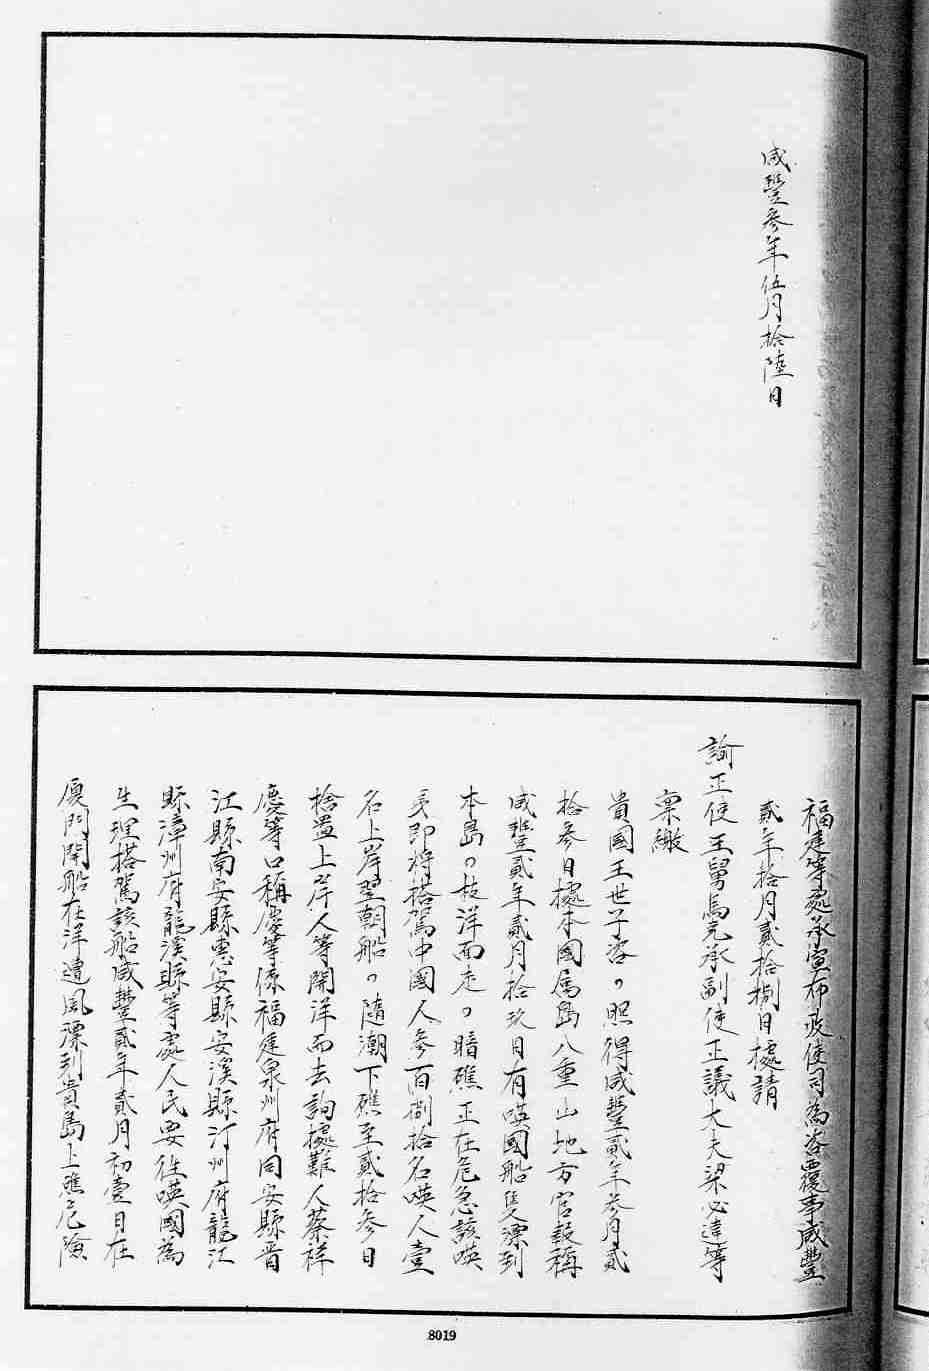 咸豐參年伍月拾陸日
福建等處承宣布政使司為咨覆事咸豐
貳年拾月貳拾捌日據請
諭正使王舅馬克承副使正議大夫梁必達等
稟繳
貴國王世子咨〇照得咸豐貳年參月貳
拾參日據本國属島八重山地方官報稱
咸豐貳年貳月拾玖日有暎國船隻漂到
本島〇枝洋面走〇暗礁正在危急該暎
夷即將搭駕中國人參百捌拾名暎人壹
名上岸翌朝船〇隨潮下礁至貳拾參日
捨置上岸人等開洋而去詢據難人蔡祥
慶等口稱慶等係福建泉州府同安縣晋
江縣南安縣惠安縣安溪縣汀州府龍江
縣漳州府龍溪縣等處人民要往暎國為
生理搭駕該船咸豐貳年貳月初壹日在
厦門開船在洋遭風漂到貴島上礁之危險
8019